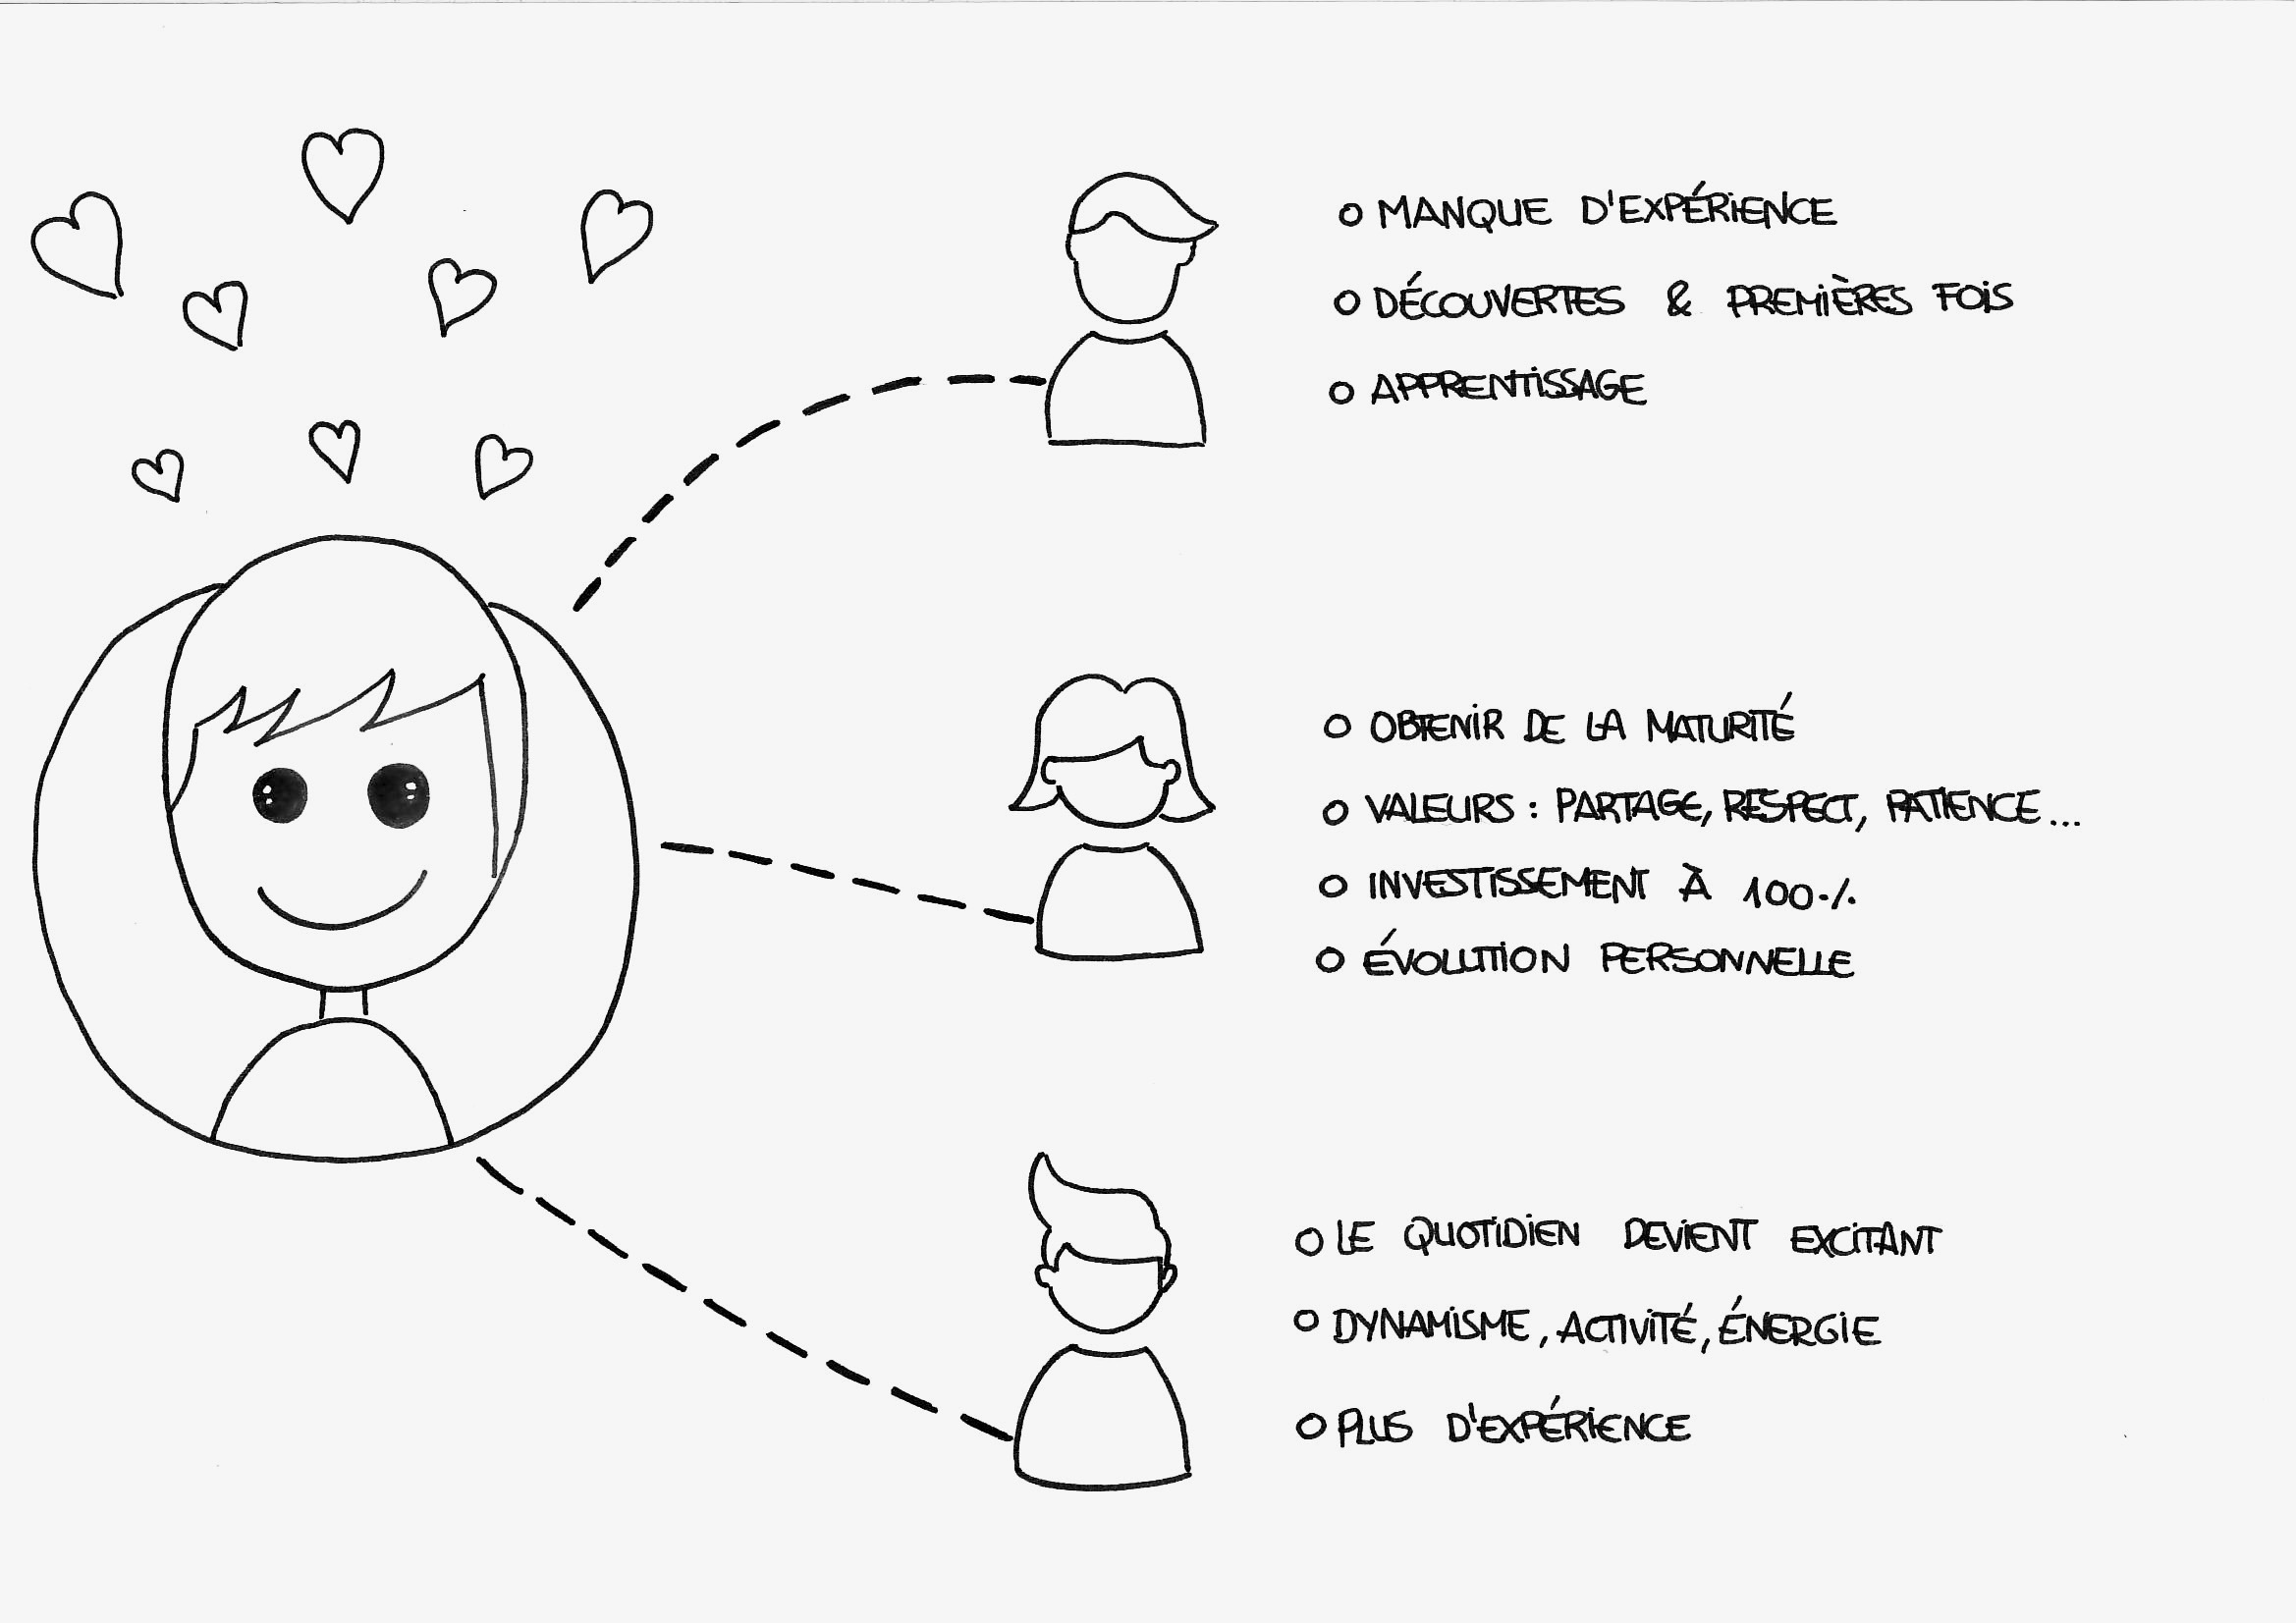 MANQUE D'EXPÉRIENCE
DÉCOUVERTES & PREMIÈRES FOIS
APPRENTISSAGE
OBTENIR DE LA MATURITÉ
VALEURS : PARTAGE, RESPECT, PATIENCE...
INVESTISSEMENT À 100%
ÉVOLUTION PERSONNELLE
LE QUOTIDIEN DEVIENT EXCITANT
DYNAMISME, ACTIVITÉ, ÉNERGIE
PLUS D'EXPÉRIENCE